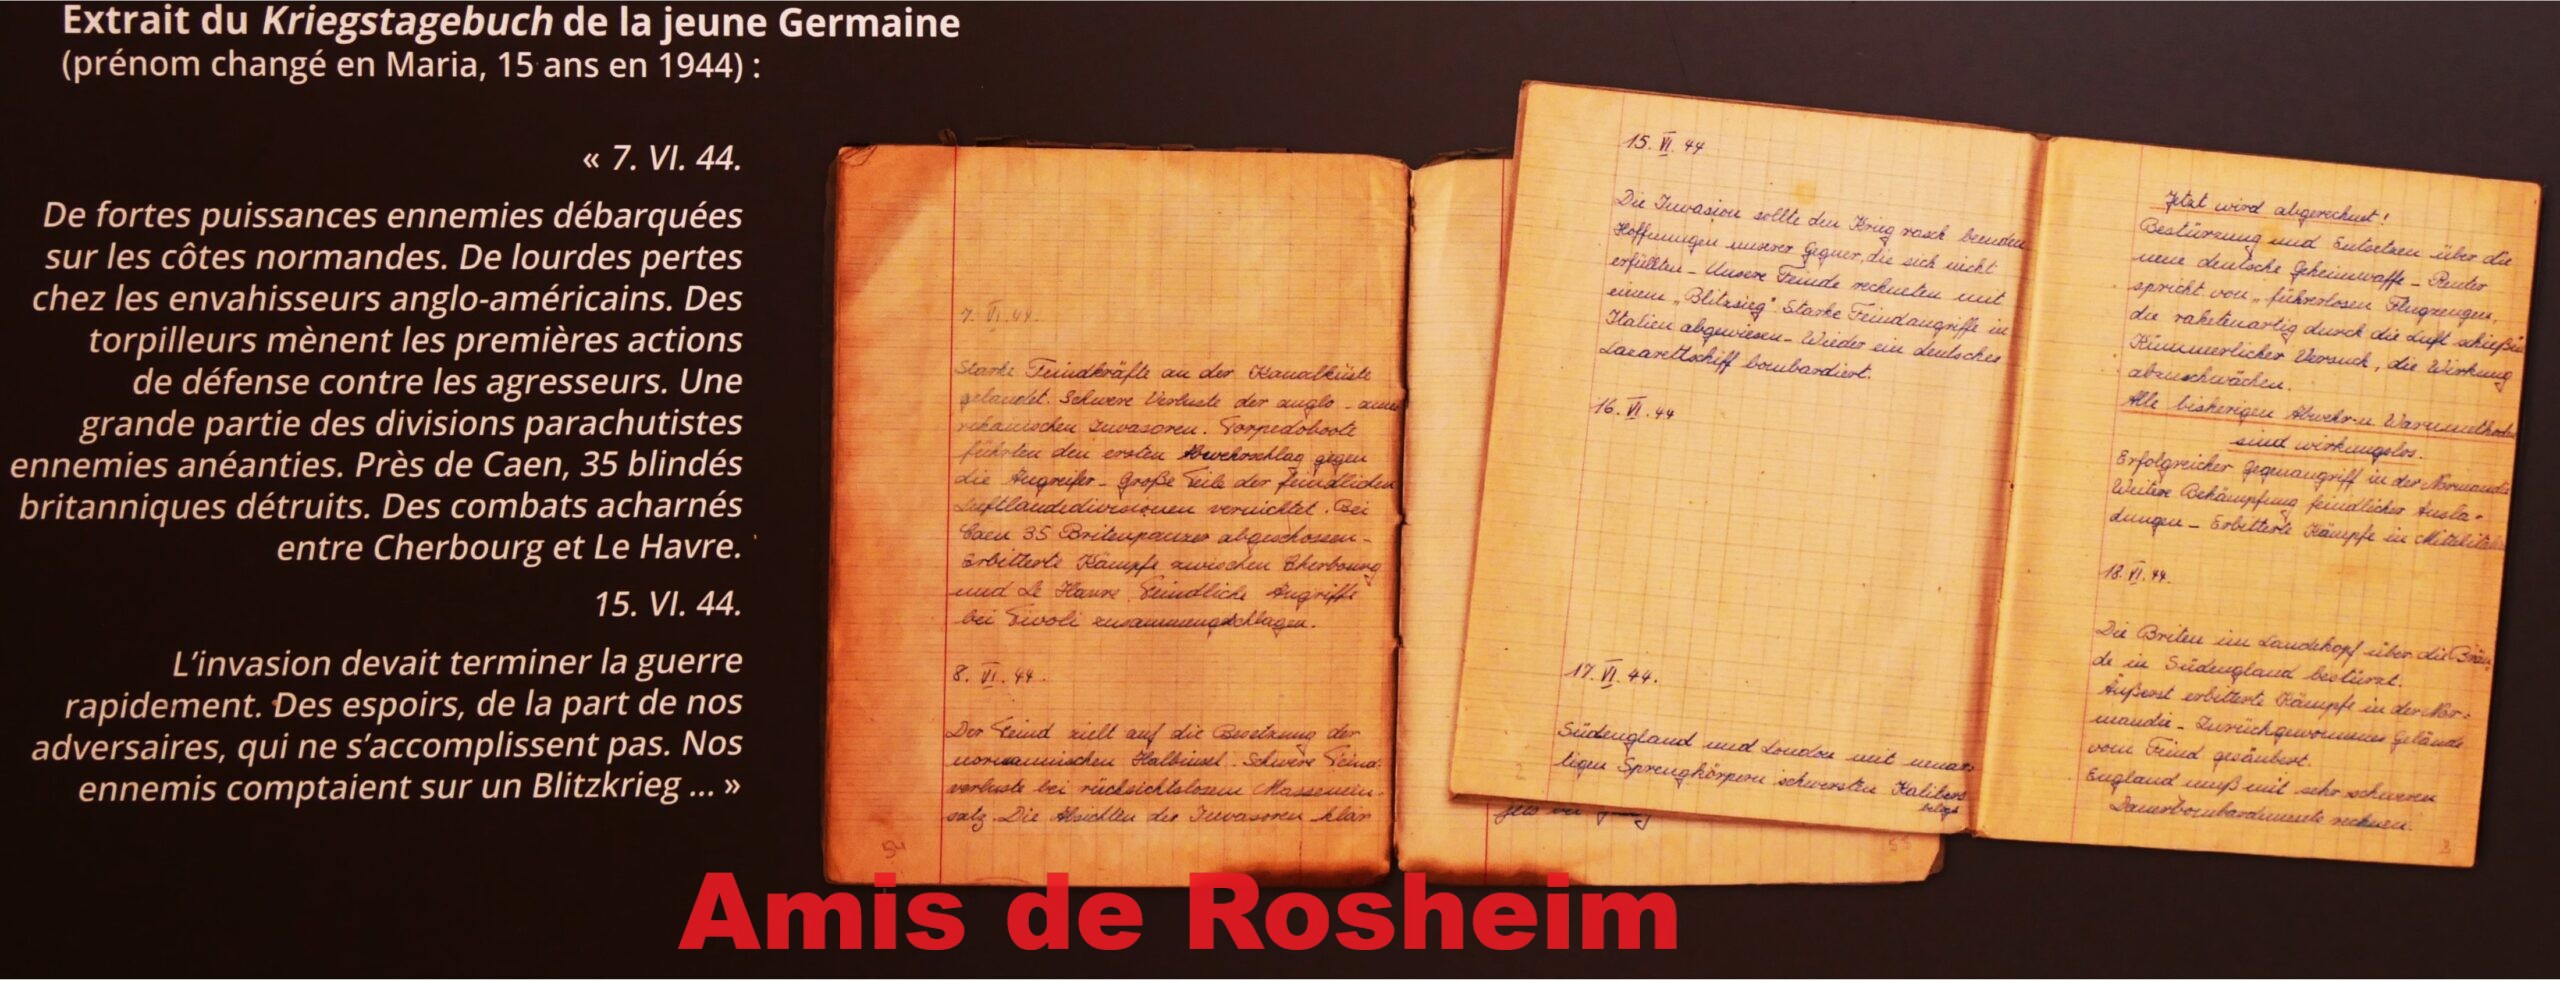 Extrait du Kriegstagebuch de la jeune Germaine
(prénom changé en Maria, 15 ans en 1944) :
« 7. VI. 44.
De fortes puissances ennemies débarquées
sur les côtes normandes. De lourdes pertes
chez les envahisseurs anglo-américains. Des
torpilleurs mènent les premières actions
de défense contre les agresseurs. Une
grande partie des divisions parachutistes
ennemies anéanties. Près de Caen, 35 blindés
britanniques détruits. Des combats acharnés
entre Cherbourg et Le Havre.
15. VI. 44.
L’invasion devait terminer la guerre
rapidement. Des espoirs, de la part de nos
adversaires, qui ne s’accomplissent pas. Nos
ennemis comptaient sur un Blitzkrieg ... »
7. VI. 44.
Starke Feindkräfte an der Kanalküste
gelandet. Schwere Verluste der anglo-ame
rikanischen Invasoren. Torpedoboote
führten den ersten Abwehrschlag gegen
die Angreifer - Große Teile der feindlichen
Luftlandedivisionen vernichtet. Bei
Caen 35 Britenpanzer abgeschossen -
Erbitterte Kämpfe zwischen Cherbourg
und Le Havre. Feindliche Angriffe
bei Tivoli zusammengeschlagen.
8. VI. 44.
Der Feind zielt auf die Besetzung der
normannischen Halbinsel. Schwere Feind-
verluste bei rücksichtslosem Massenein-
satz. Die Absichten der Invasoren klar
54
15. VI. 44
Die Invasion sollte den Krieg rasch beenden
Hoffnungen unserer Gegner, die sich nicht
erfüllten - Unsere Feinde rechneten mit
einem „Blitzsieg" Starke Feindangriffe in
Italien abgewiesen - Wieder ein deutsches
Lazarettschiff bombardiert.
16. VI. 44
17. VI. 44.
Südengland und London mit neuar-
tigen Sprengkörpern schwersten Kalibers
belegt
Jetzt wird abgerechnet!
Bestürzung und Entsetzen über die
neue deutsche Geheimwaffe - Reuter
spricht von „führerlosen Flugzeugen,
die raketenartig durch die Luft schießen
Kümmerlicher Versuch, die Wirkung
abzuschwächen.
Alle bisherigen Abwehr-u. Warnmethoden
sind wirkungslos.
Erfolgreicher Gegenangriff in der Normandie
Weitere Bekämpfung feindlicher Ausla-
dungen - Erbitterte Kämpfe in Mittelitalien
18. VI. 44.
Die Briten im Landekopf über die Brän-
de in Südengland bestürzt.
Äußerst erbitterte Kämpfe in der Nor-
mandie - Zurückgewonnenes Gelände
vom Feind gesäubert.
England muß mit sehr schweren
Dauerbombardements rechnen.
Amis de Rosheim